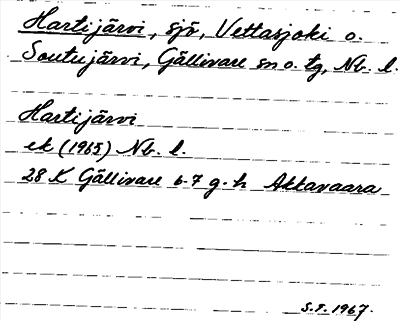 Hartijärvi, sjö, Vettasjoki o.
Soutujärvi, Gällivare sn o. tg, Nb. l.
Hartijärvi
ek (1965) Nb. l.
28 K Gällivare 6-7 g-h Akkavaara
S.F. 1967.